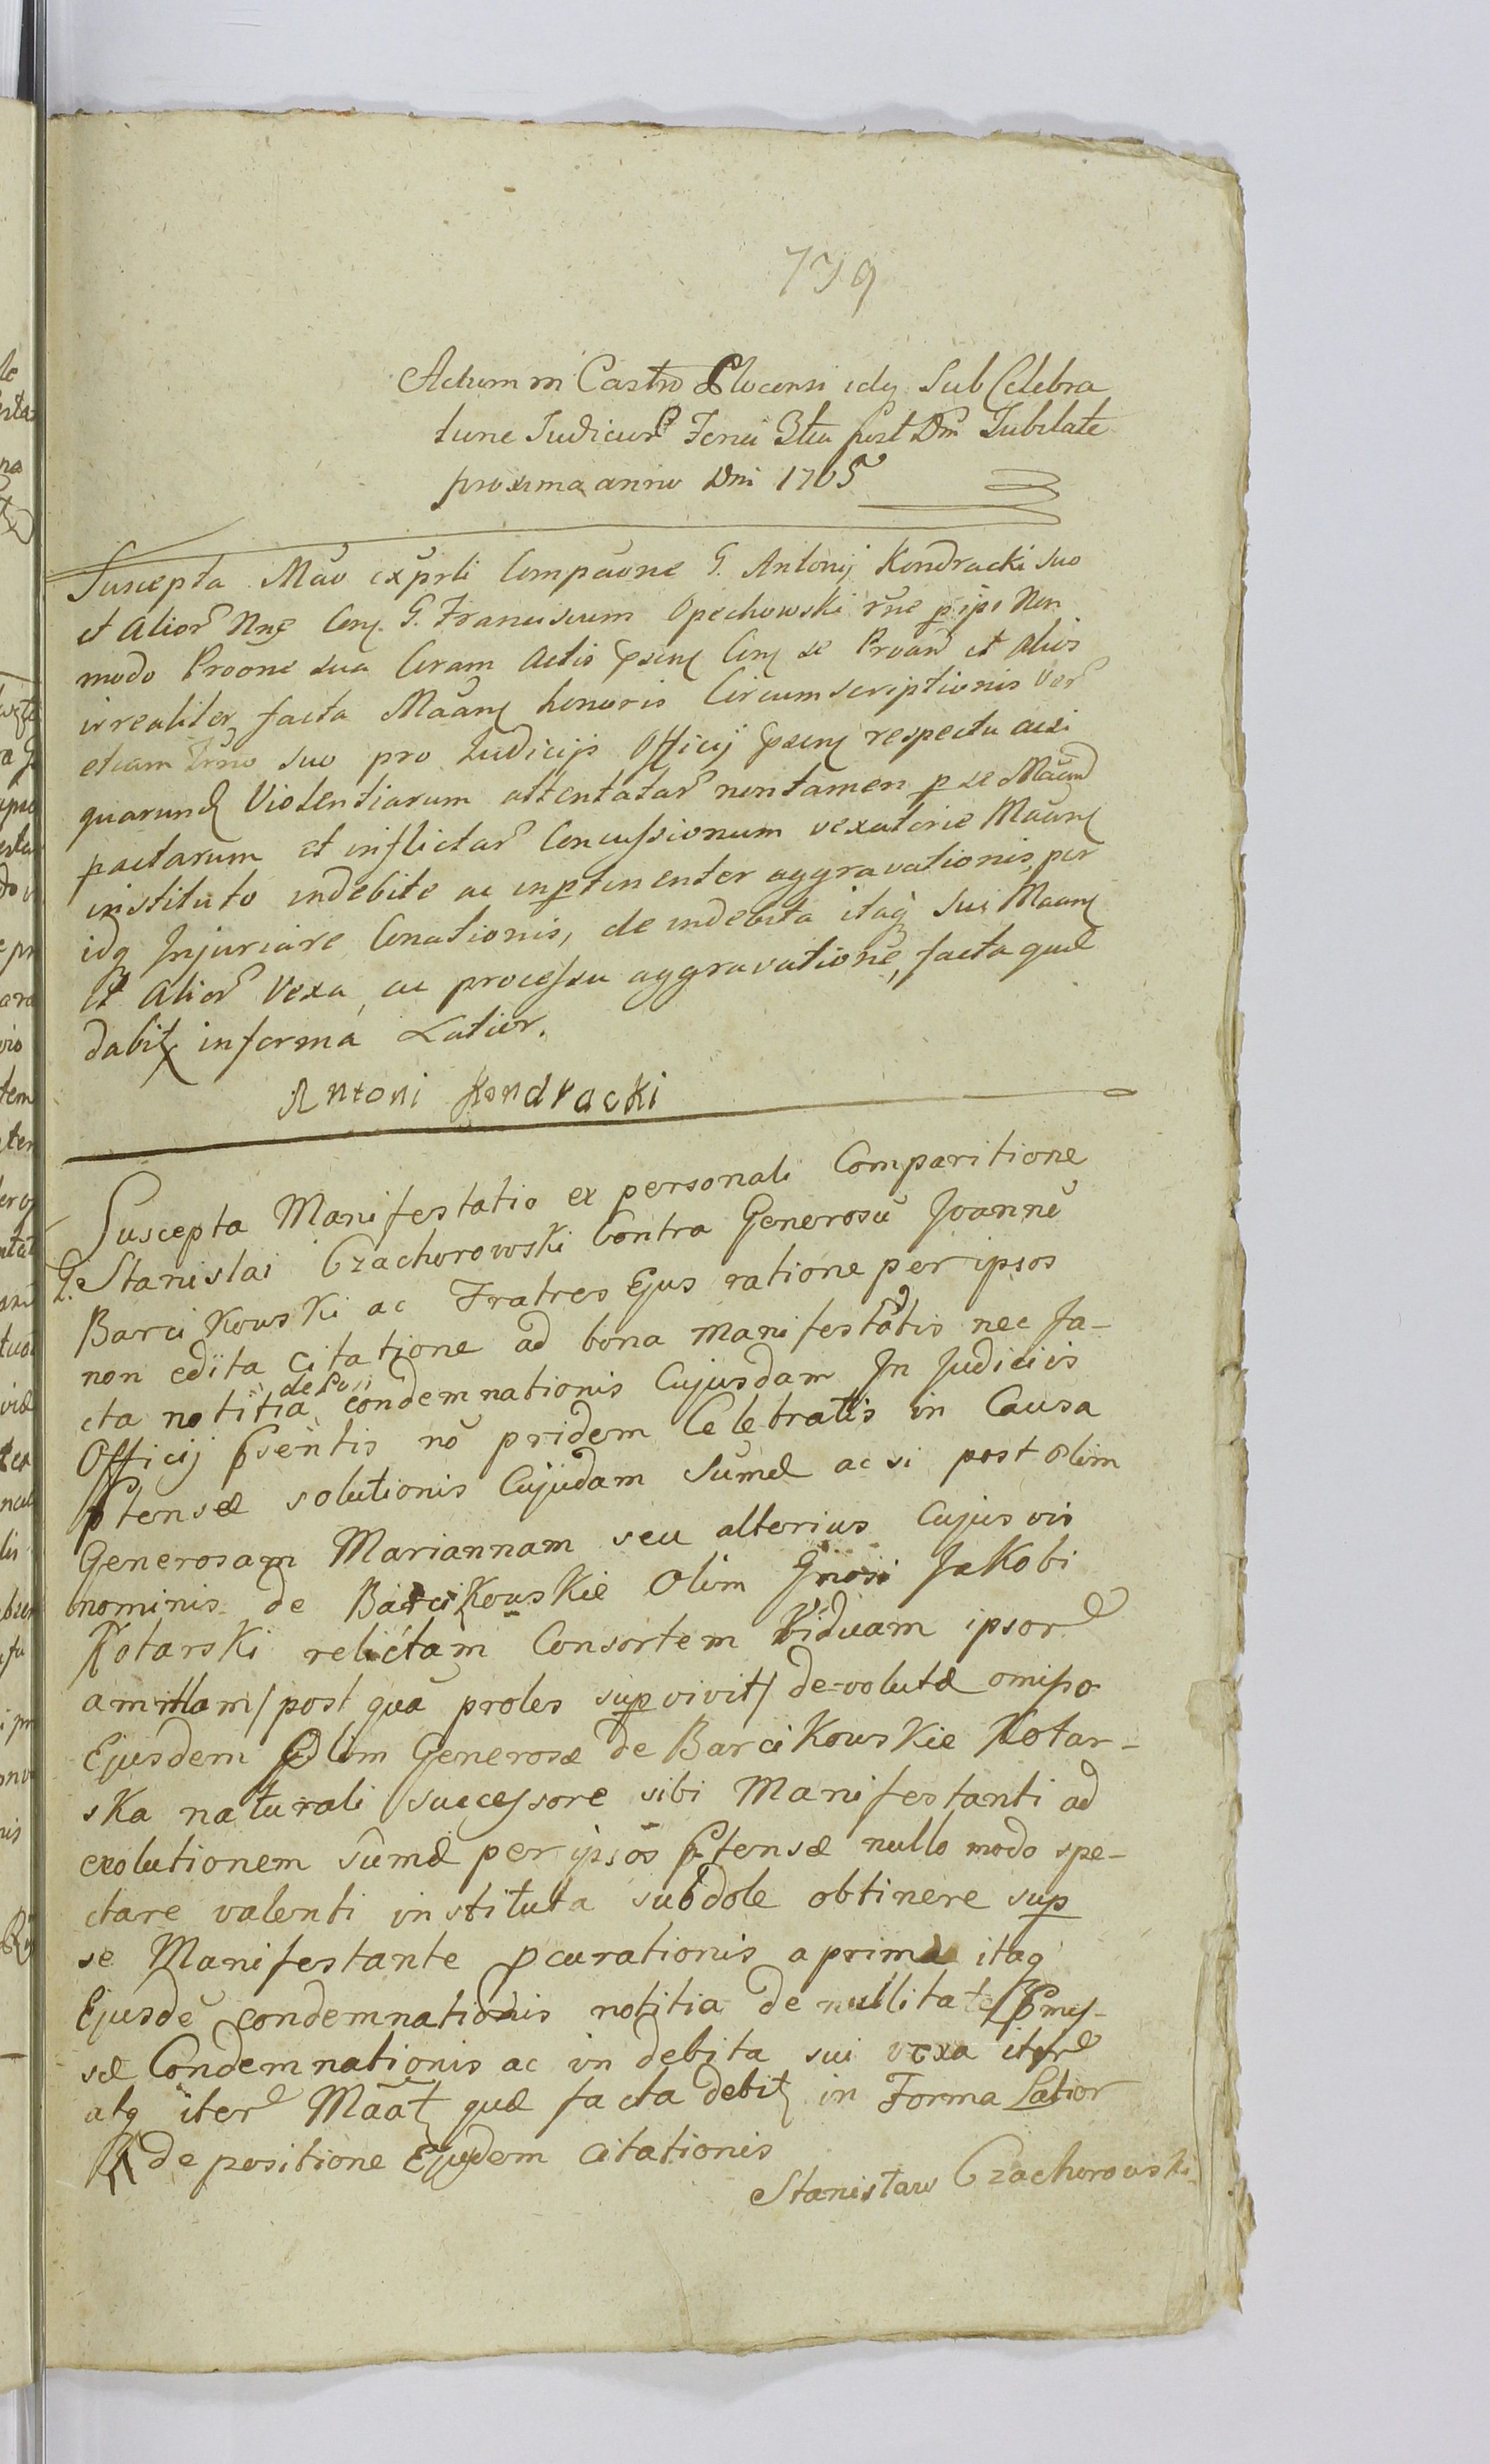 739
Actum in Castro Plocensi idq Sub Celebra
tione Judicior Feria 3tia post Dm Jubilate
proxima anno Dni 1765
Suscepta Mão ex prli Compaõne G. Antonij Kondracki suo
et Alior Nne Con G. Franciscum Opechowski rñe p ipi Non
modo Proone sua Coram Actis psen Con se Proan et Alios
irrealiter facta Mãan honoris Circumscriptionis Ver
etiam Trno suo pro Judicijs Officij psen respectu acsi
quarund Violentiarum attentatar non tamen p se Mãand
pactarum et inflictar Concussionum vexatorie Mãan
instituto indebite ac inptinenter aggravationis, per
idq Injuriare Conationis, de indebita itaq sui Maan
et Alior Vexa, ac processu aggravatione, facta quæ
dabit in forma Latior.
Antoni Kondracki
Suscepta Manifestatio ex personali Comparitione
G. Stanislai Czachorowski Contra Generosũ Joannẽ
Barcikowski ac Fratres Ejus ratione per ipsos
non edita citatione ad bona manifestãtis nec fa-
cta notitia de Po condemnationis Cujusdam In Judiciis
Officij Psentis nõ pridem Celebratis in Causa
Ptensæ solutionis Cujudam Sumæ ac si post olim
Generosam Mariannam seu alterius cujusvis
nominis de Barcikowskie Olim Gnosi Jakobi
Kotarski relictam Consortem Viduam ipsor
amittam/post quã proles supvivit/ de-volutæ omisso
Ejusdem Olim Generosæ de Barcikowskie Kotar-
ska naturali successore sibi Manifestanti ad
exolutionem sumæ per ipsos Ptensæ nullo modo spe-
ctare valenti instituta subdole obtinere sup
se Manifestante pcurationis a prima itaq
Ejusdẽ condemnationis notitia de nullitate Pmis-
sæ Condemnationis ac in debita sui vexa iter
atq iter Mãat quæ facta debit in Forma Latior
de positione Ejusdem citationis
Stanisław Czachorowski